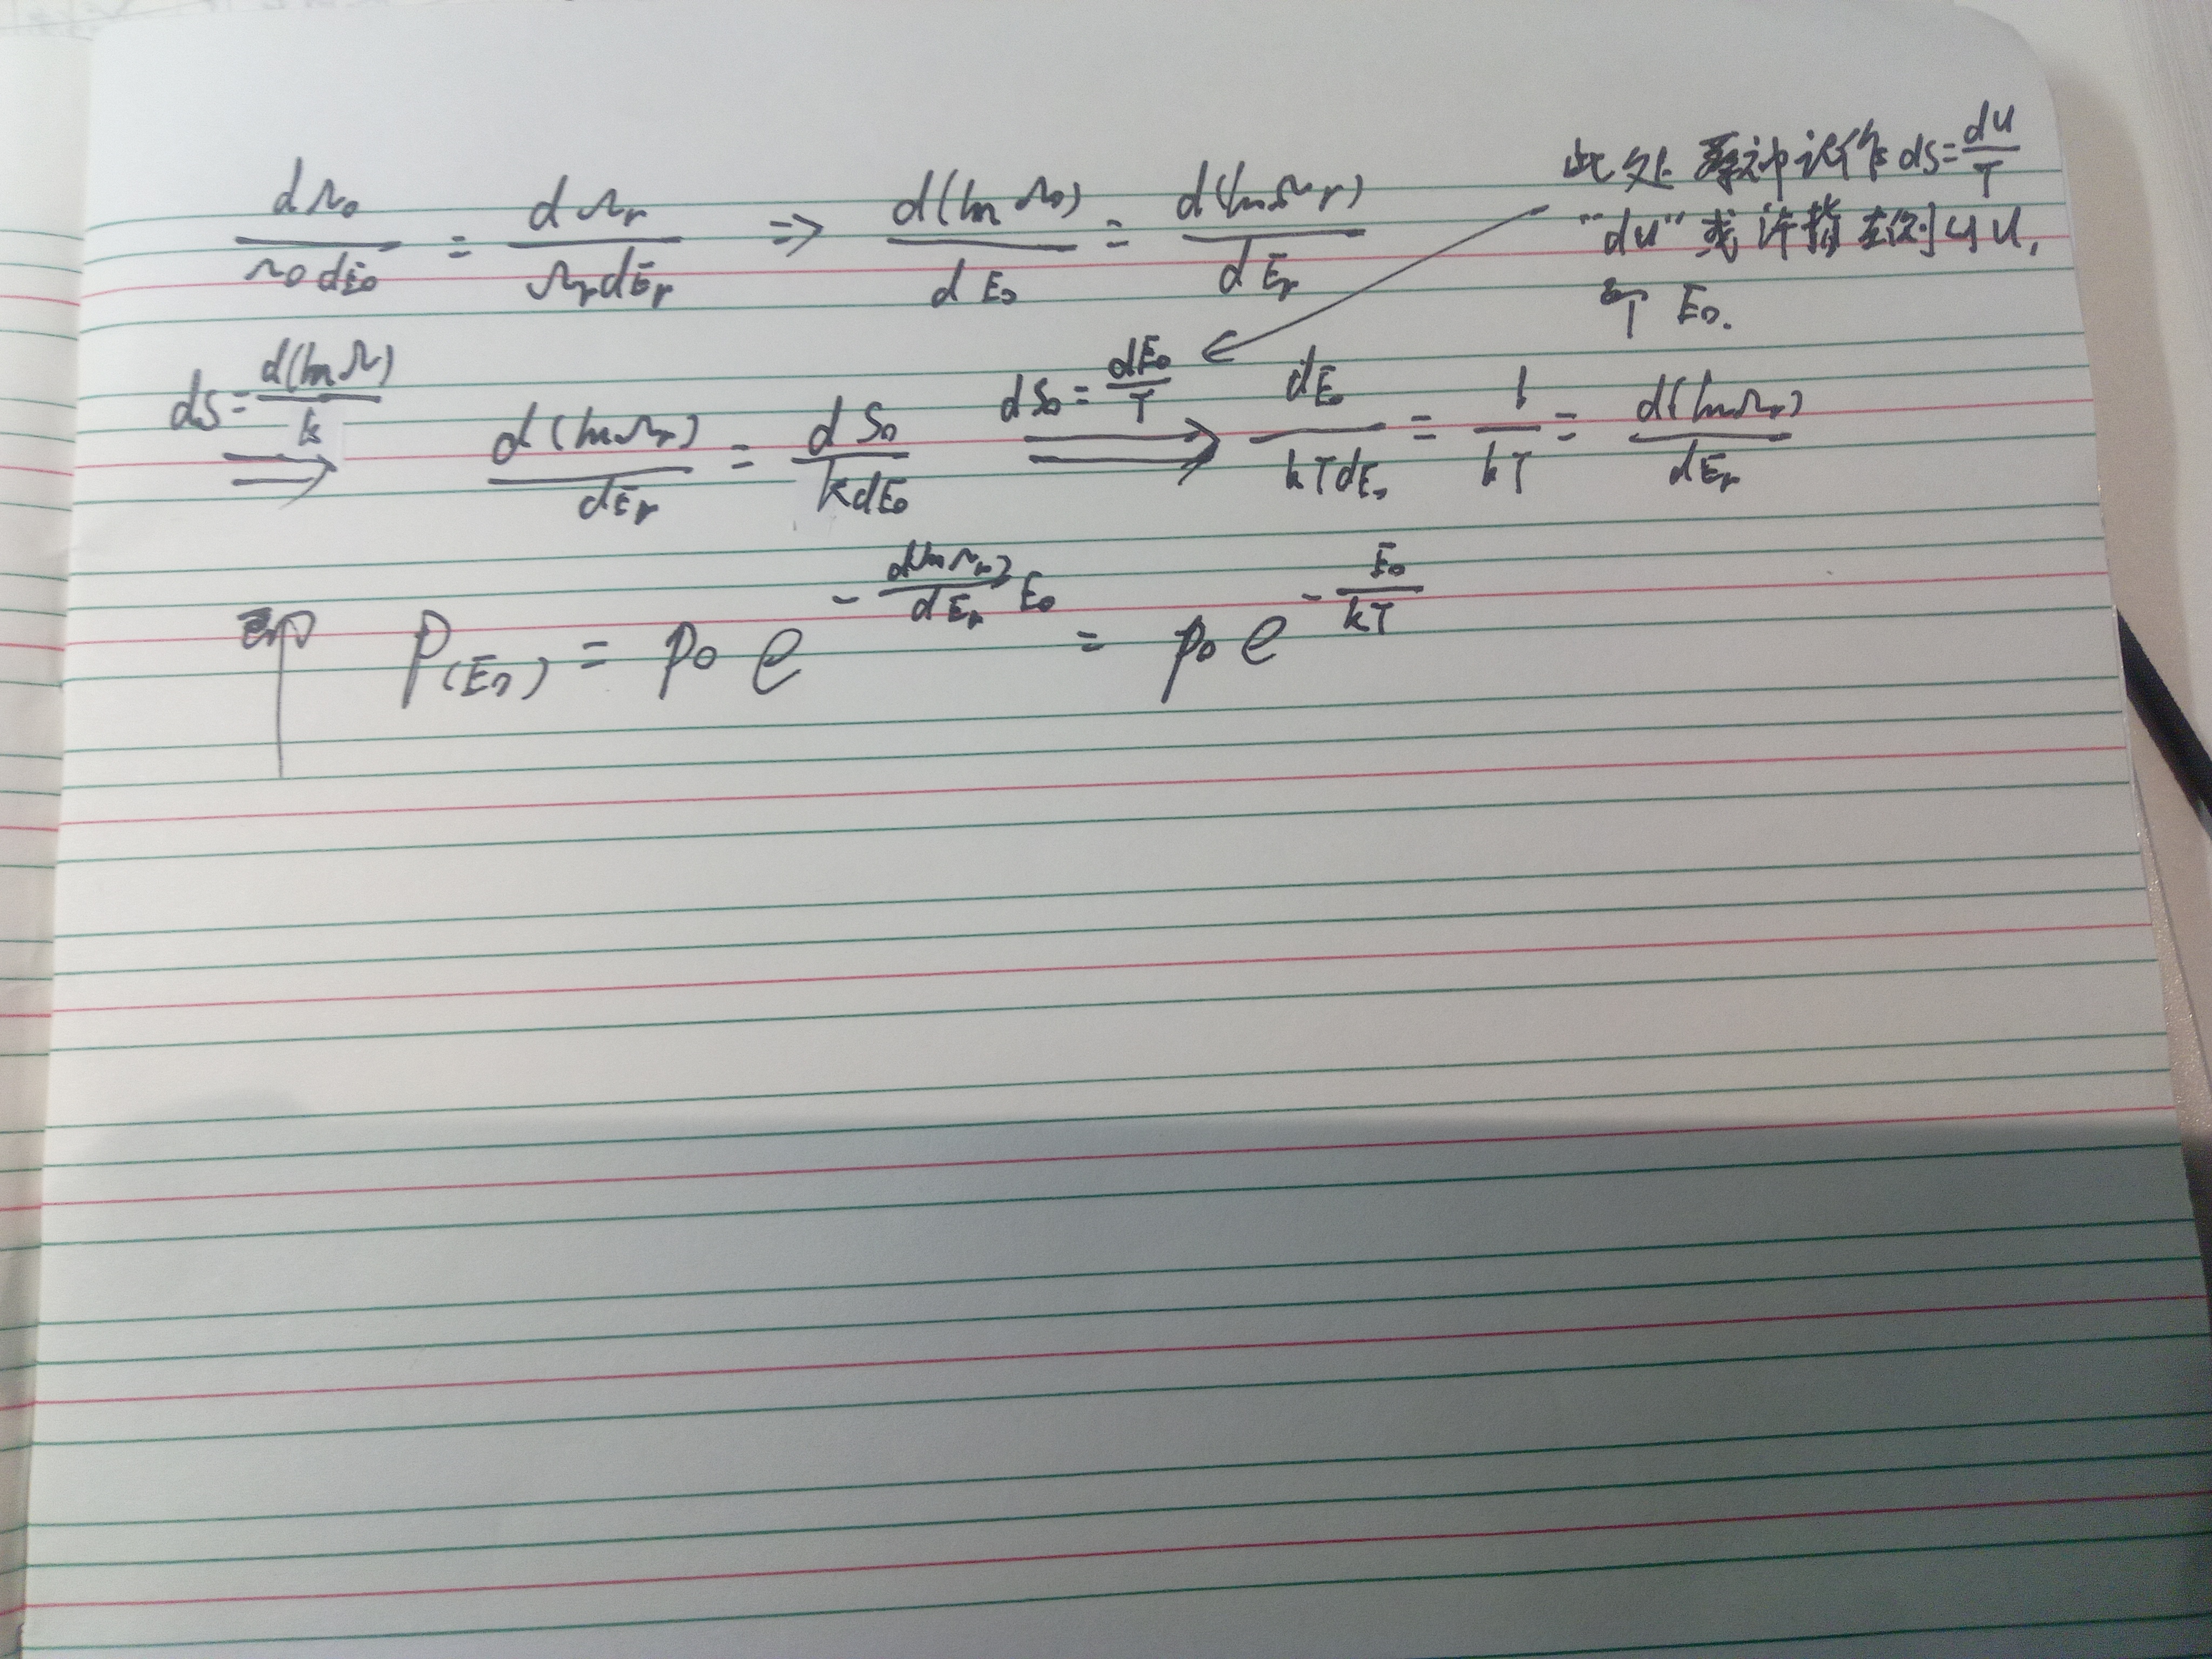 dΩ₀/(Ω₀dE₀) = dΩᵣ/(ΩᵣdEᵣ) ⇒ d(lnΩ₀)/dE₀ = d(lnΩᵣ)/dEᵣ
此处 记作 dS=dU/T
"dU"或许指左侧的U,
即 E₀.
dS=d(lnΩ)/k ⇒ d(lnΩᵣ)/dEᵣ = dS₀/(kdE₀) dS₀=dE₀/T ⇒ dE₀/(kTdE₀) = 1/(kT) = d(lnΩᵣ)/dEᵣ
即 P(E₀) = p₀ e^(-d(lnΩᵣ)/dEᵣ E₀) = p₀ e^(-E₀/(kT))